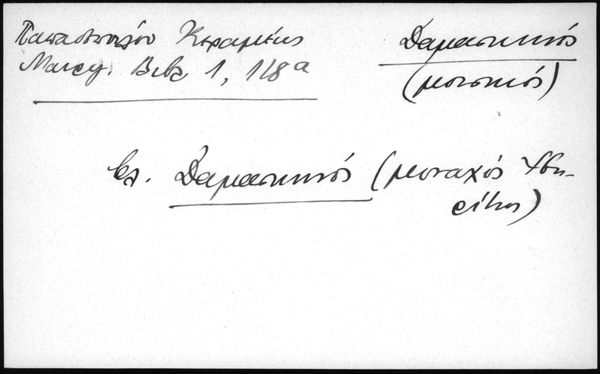 Παπαδοπούλου Κεραμέως
Μαυρ. Βιβλ 1, 118α
Δαμασκηνός
(μουσικός)
βλ. Δαμασκηνός (μοναχός Ἰβη-
ρίτης)